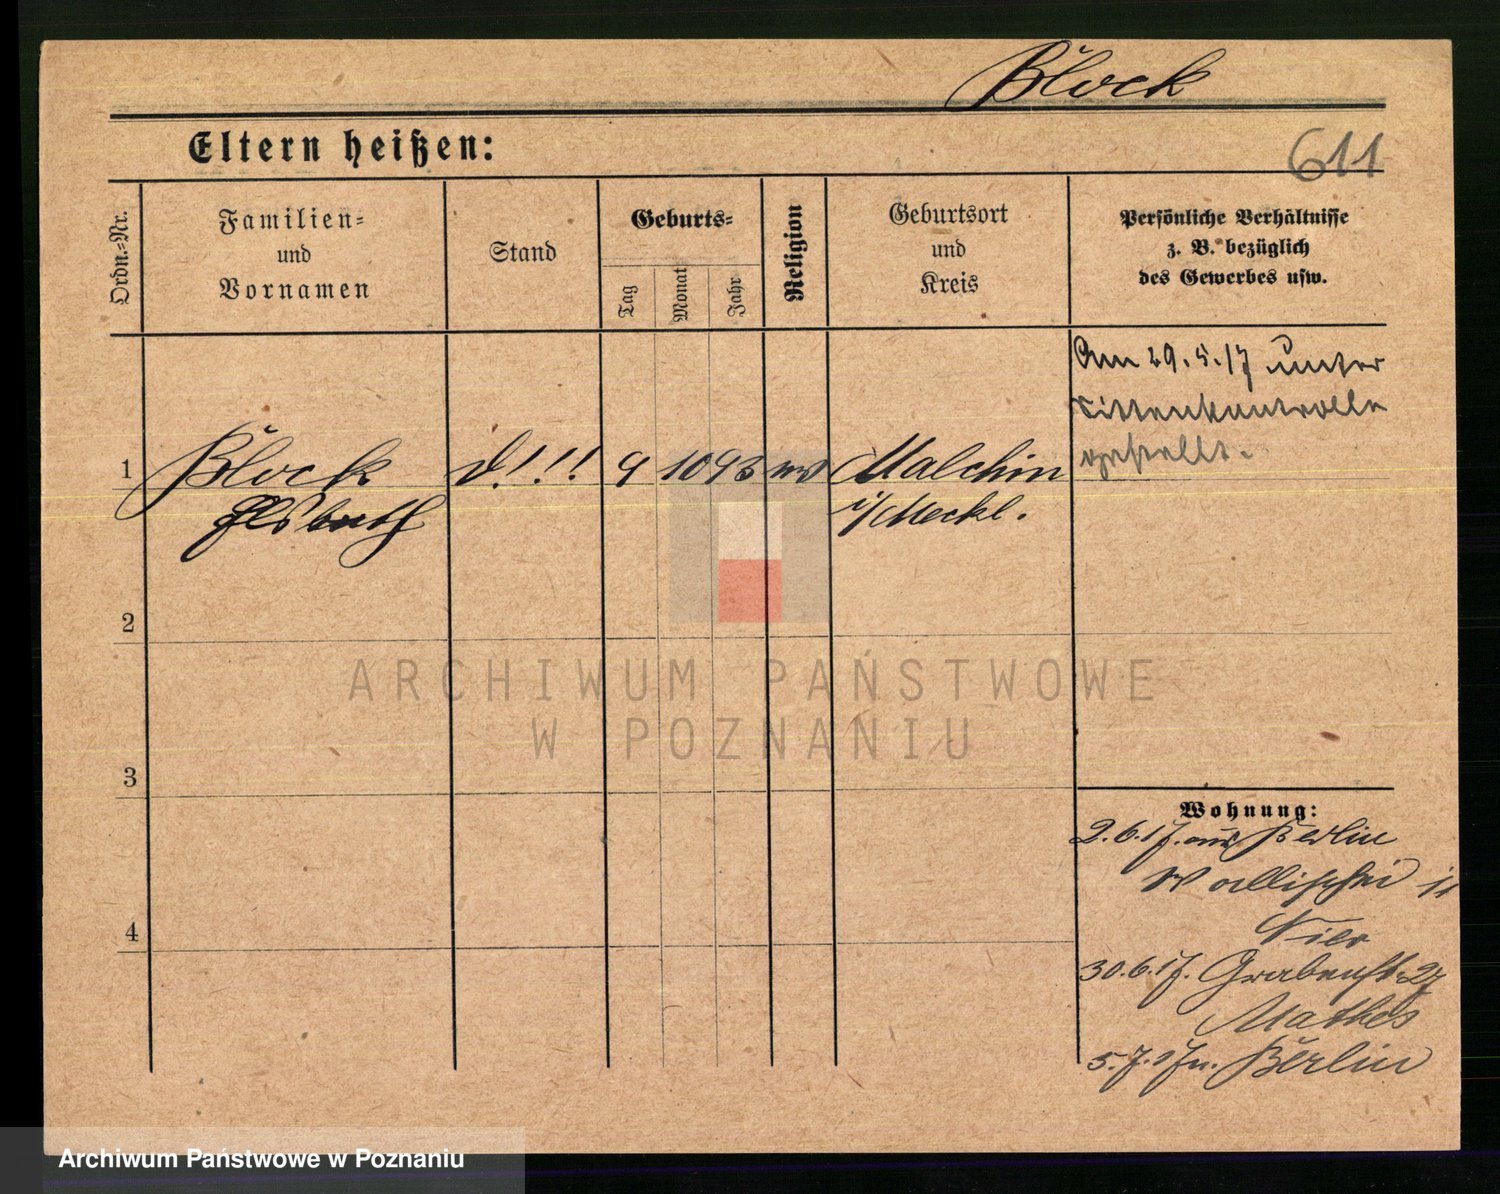 Block
Eltern heißen:
611
Ordn.-Nr.
Familien-
und
Vornamen
Stand
Geburts-
Tag
Monat
Jahr
Religion
Geburtsort
und
Kreis
Persönliche Verhältnisse
z. B. bezüglich
des Gewerbes usw.
Am 29.5.17 unter
Sittenkontrolle
gestellt.
1
Block
Elsbeth
d!!!
9
10
93
Malchin
i/Meckl.
2
3
4
Wohnung:
2.6.17. aus Berlin
Wallischei 11
30.6.17. Grabenstr. 27
Mathes
5.7.17 n. Berlin
ARCHIWUM PAŃSTWOWE
W POZNANIU
Archiwum Państwowe w Poznaniu